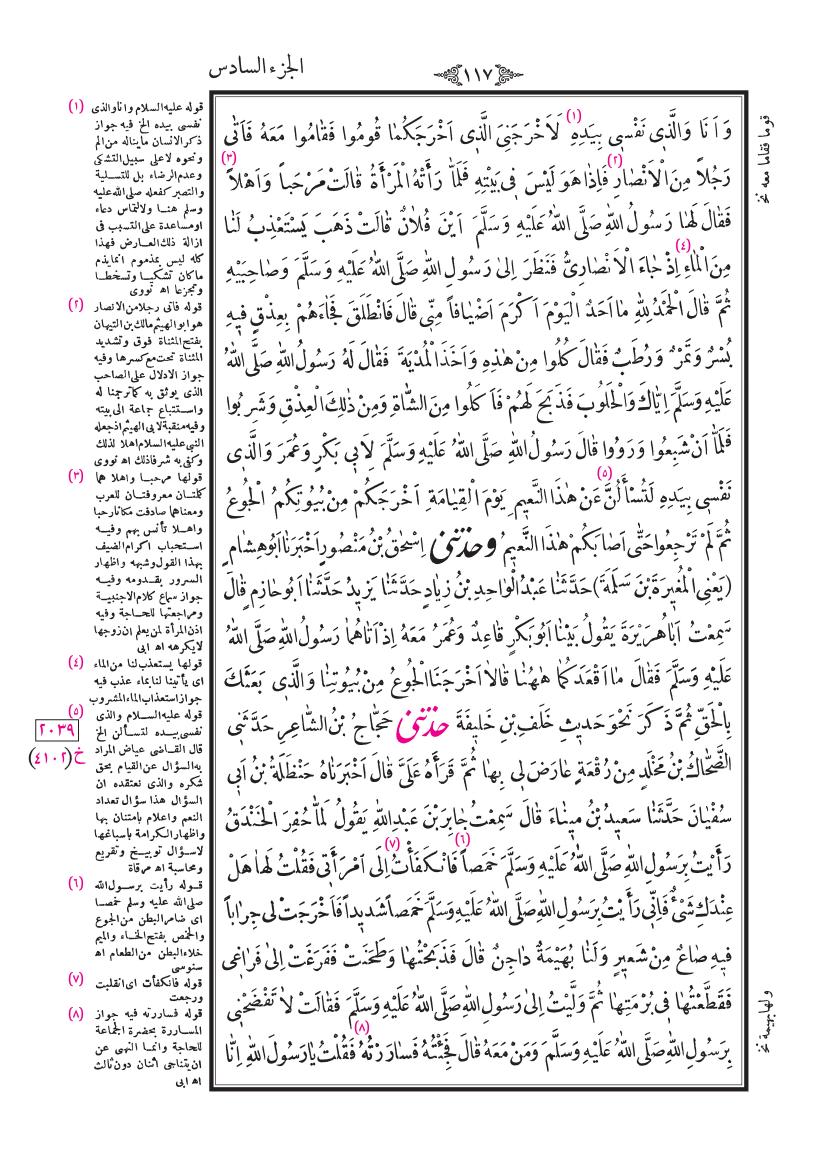 الجزء السادس
١١٧
وَاَنَا وَالَّذِى نَفْسِى بِيَدِهِ (١) لَاَخْرَجَنِىَ الَّذِى اَخْرَجَكُمَا قُومُوا فَقَامُوا مَعَهُ فَاَتٰى
رَجُلاً مِنَ الْاَنْصَارِ (٢) فَاِذَا هُوَ لَيْسَ فِى بَيْتِهِ فَلَمَّا رَأَتْهُ الْمَرْأَةُ قَالَتْ مَرْحَباً وَاَهْلاً (٣)
فَقَالَ لَهَا رَسُولُ اللهِ صَلَّى اللهُ عَلَيْهِ وَسَلَّمَ اَيْنَ فُلَانٌ قَالَتْ ذَهَبَ يَسْتَعْذِبُ لَنَا
مِنَ الْمَاءِ (٤) اِذْ جَاءَ الْاَنْصَارِىُّ فَنَظَرَ اِلىٰ رَسُولِ اللهِ صَلَّى اللهُ عَلَيْهِ وَسَلَّمَ وَصَاحِبَيْهِ
ثُمَّ قَالَ الْحَمْدُ لِلّٰهِ مَا اَحَدٌ الْيَوْمَ اَكْرَمَ اَضْيَافاً مِنِّى قَالَ فَانْطَلَقَ فَجَاءَهُمْ بِعِذْقٍ فِيهِ
بُسْرٌ وَتَمْرٌ وَرُطَبٌ فَقَالَ كُلُوا مِنْ هٰذِهِ وَاَخَذَ الْمُدْيَةَ فَقَالَ لَهُ رَسُولُ اللهِ صَلَّى اللهُ
عَلَيْهِ وَسَلَّمَ اِيَّاكَ وَالْحَلُوبَ فَذَبَحَ لَهُمْ فَاَكَلُوا مِنَ الشَّاةِ وَمِنْ ذٰلِكَ الْعِذْقِ وَشَرِبُوا
فَلَمَّا اَنْ شَبِعُوا وَرَوُوا قَالَ رَسُولُ اللهِ صَلَّى اللهُ عَلَيْهِ وَسَلَّمَ لِاَبِى بَكْرٍ وَعُمَرَ وَالَّذِى
نَفْسِى بِيَدِهِ لَتُسْأَلُنَّ (٥) عَنْ هٰذَا النَّعِيمِ يَوْمَ الْقِيَامَةِ اَخْرَجَكُمْ مِنْ بُيُوتِكُمُ الْجُوعُ
ثُمَّ لَمْ تَرْجِعُوا حَتّٰى اَصَابَكُمْ هٰذَا النَّعِيمُ وحدثنى اِسْحٰقُ بْنُ مَنْصُورٍ اَخْبَرَنَا اَبُو هِشَامٍ
(يَعْنِى الْمُغِيرَةَ بْنَ سَلَمَةَ) حَدَّثَنَا عَبْدُ الْوَاحِدِ بْنُ زِيَادٍ حَدَّثَنَا يَزِيدُ حَدَّثَنَا اَبُو حَازِمٍ قَالَ
سَمِعْتُ اَبَا هُرَيْرَةَ يَقُولُ بَيْنَا اَبُو بَكْرٍ قَاعِدٌ وَعُمَرُ مَعَهُ اِذْ اَتَاهُمَا رَسُولُ اللهِ صَلَّى اللهُ
عَلَيْهِ وَسَلَّمَ فَقَالَ مَا اَقْعَدَكُمَا هٰهُنَا قَالَا اَخْرَجَنَا الْجُوعُ مِنْ بُيُوتِنَا وَالَّذِى بَعَثَكَ
بِالْحَقِّ ثُمَّ ذَكَرَ نَحْوَ حَدِيثِ خَلَفِ بْنِ خَلِيفَةَ حدثنى حَجَّاجُ بْنُ الشَّاعِرِ حَدَّثَنِى
الضَّحَّاكُ بْنُ مَخْلَدٍ مِنْ رُقْعَةٍ عَارَضَ لِى بِهَا ثُمَّ قَرَأَهُ عَلَىَّ قَالَ اَخْبَرَنَاهُ حَنْظَلَةُ بْنُ اَبِى
سُفْيَانَ حَدَّثَنَا سَعِيدُ بْنُ مِينَاءَ قَالَ سَمِعْتُ جَابِرَ بْنَ عَبْدِ اللهِ يَقُولُ لَمَّا حُفِرَ الْخَنْدَقُ
رَأَيْتُ بِرَسُولِ اللهِ صَلَّى اللهُ عَلَيْهِ وَسَلَّمَ خَمَصاً (٦) فَانْكَفَأْتُ (٧) اِلَى امْرَأَتِى فَقُلْتُ لَهَا هَلْ
عِنْدَكِ شَىْءٌ فَاِنِّى رَأَيْتُ بِرَسُولِ اللهِ صَلَّى اللهُ عَلَيْهِ وَسَلَّمَ خَمَصاً شَدِيداً فَاَخْرَجَتْ لِى جِرَاباً
فِيهِ صَاعٌ مِنْ شَعِيرٍ وَلَنَا بُهَيْمَةٌ دَاجِنٌ قَالَ فَذَبَحْتُهَا وَطَحَنَتْ فَفَرَغَتْ اِلىٰ فَرَاغِى
فَقَطَّعْتُهَا فِى بُرْمَتِهَا ثُمَّ وَلَّيْتُ اِلىٰ رَسُولِ اللهِ صَلَّى اللهُ عَلَيْهِ وَسَلَّمَ فَقَالَتْ لَا تَفْضَحْنِى
بِرَسُولِ اللهِ صَلَّى اللهُ عَلَيْهِ وَسَلَّمَ وَمَنْ مَعَهُ قَالَ فَجِئْتُهُ فَسَارَرْتُهُ (٨) فَقُلْتُ يَا رَسُولَ اللهِ اِنَّا
قوما فقاما معه نخ
ولها بهيمة نخ
(١) قوله عليه السلام وانا والذى
نفسى بيده الخ فيه جواز
ذكر الانسان ما يناله من الم
ونحوه لا على سبيل التشكى
وعدم الرضاء بل للتسلية
والتصبر كفعله صلى الله عليه
وسلم هنا ولالتماس دعاء
او مساعدة على التسبب فى
ازالة ذلك العارض فهذا
كله ليس بمذموم انما يذم
ما كان تشكيا وتسخطا
وتجزعا اه نووى
(٢) قوله فاتى رجلا من الانصار
هو ابو الهيثم مالك بن التيهان
بفتح المثناة فوق وتشديد
المثناة تحت مع كسرها وفيه
جواز الادلال على الصاحب
الذى يوثق به كما ترجمنا له
واستتباع جماعة الى بيته
وفيه منقبة لابى الهيثم اذ جعله
النبى عليه السلام اهلا لذلك
وكفى به شرفا ذلك اه نووى
(٣) قولها مرحبا واهلا هما
كلمتان معروفتان للعرب
ومعناهما صادفت مكانا رحبا
واهلا تأنس بهم وفيه
استحباب اكرام الضيف
بهذا القول وشبهه واظهار
السرور بقدومه وفيه
جواز سماع كلام الاجنبية
ومراجعتها للحاجة وفيه
اذن المرأة لمن يعلم ان زوجها
لا يكرهه اه ابى
(٤) قولها يستعذب لنا من الماء
اى يأتينا لنا بماء عذب فيه
جواز استعذاب الماء المشروب
(٥) قوله عليه السلام والذى
نفسى بيده لتسألن الخ
قال القاضى عياض المراد
به السؤال عن القيام بحق
شكره والذى نعتقده ان
السؤال هذا سؤال تعداد
النعم واعلام بامتنان بها
واظهار الكرامة باسباغها
لا سؤال توبيخ وتقريع
ومحاسبة اه مرقاة
(٦) قوله رأيت برسول الله
صلى الله عليه وسلم خمصا
اى ضامر البطن من الجوع
والخمص بفتح الخاء والميم
خلاء البطن من الطعام اه
سنوسى
(٧) قوله فانكفأت اى انقلبت
ورجعت
(٨) قوله فساررته فيه جواز
المساررة بحضرة الجماعة
للحاجة وانما النهى عن
ان يتناجى اثنان دون ثالث
اه ابى
٢٠٣٩
خ (٤١٠٢)